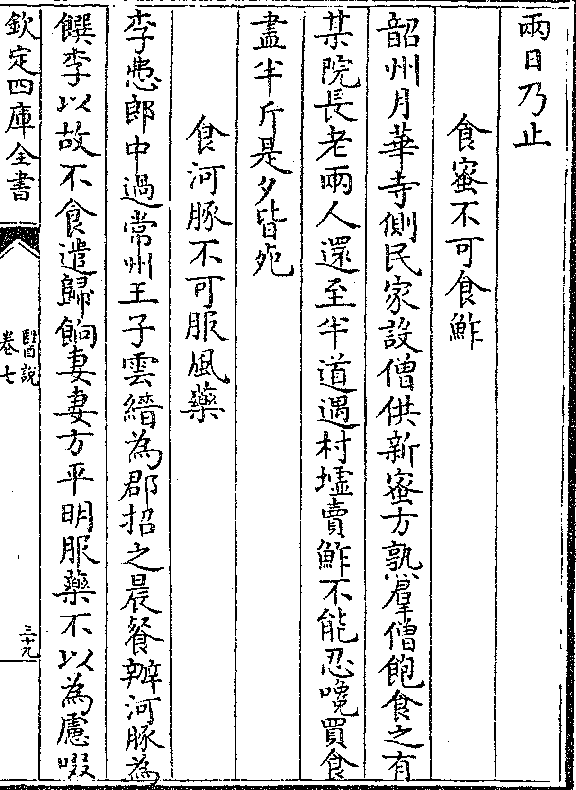 兩日乃止
食蜜不可食鮓
韶州月華寺側民家設僧供新蜜方熟羣僧飽食之有
某院長老兩人還至半道遇村墟賣鮓不能忍嚵買食
盡半斤是夕皆死
食河豚不可服風藥
李悊郎中過常州王子雲縉為郡招之晨餐辦河豚為
饌李以故不食遣歸餉妻妻方平明服藥不以為慮啜
欽定四庫全書
醫說
卷七
三十九